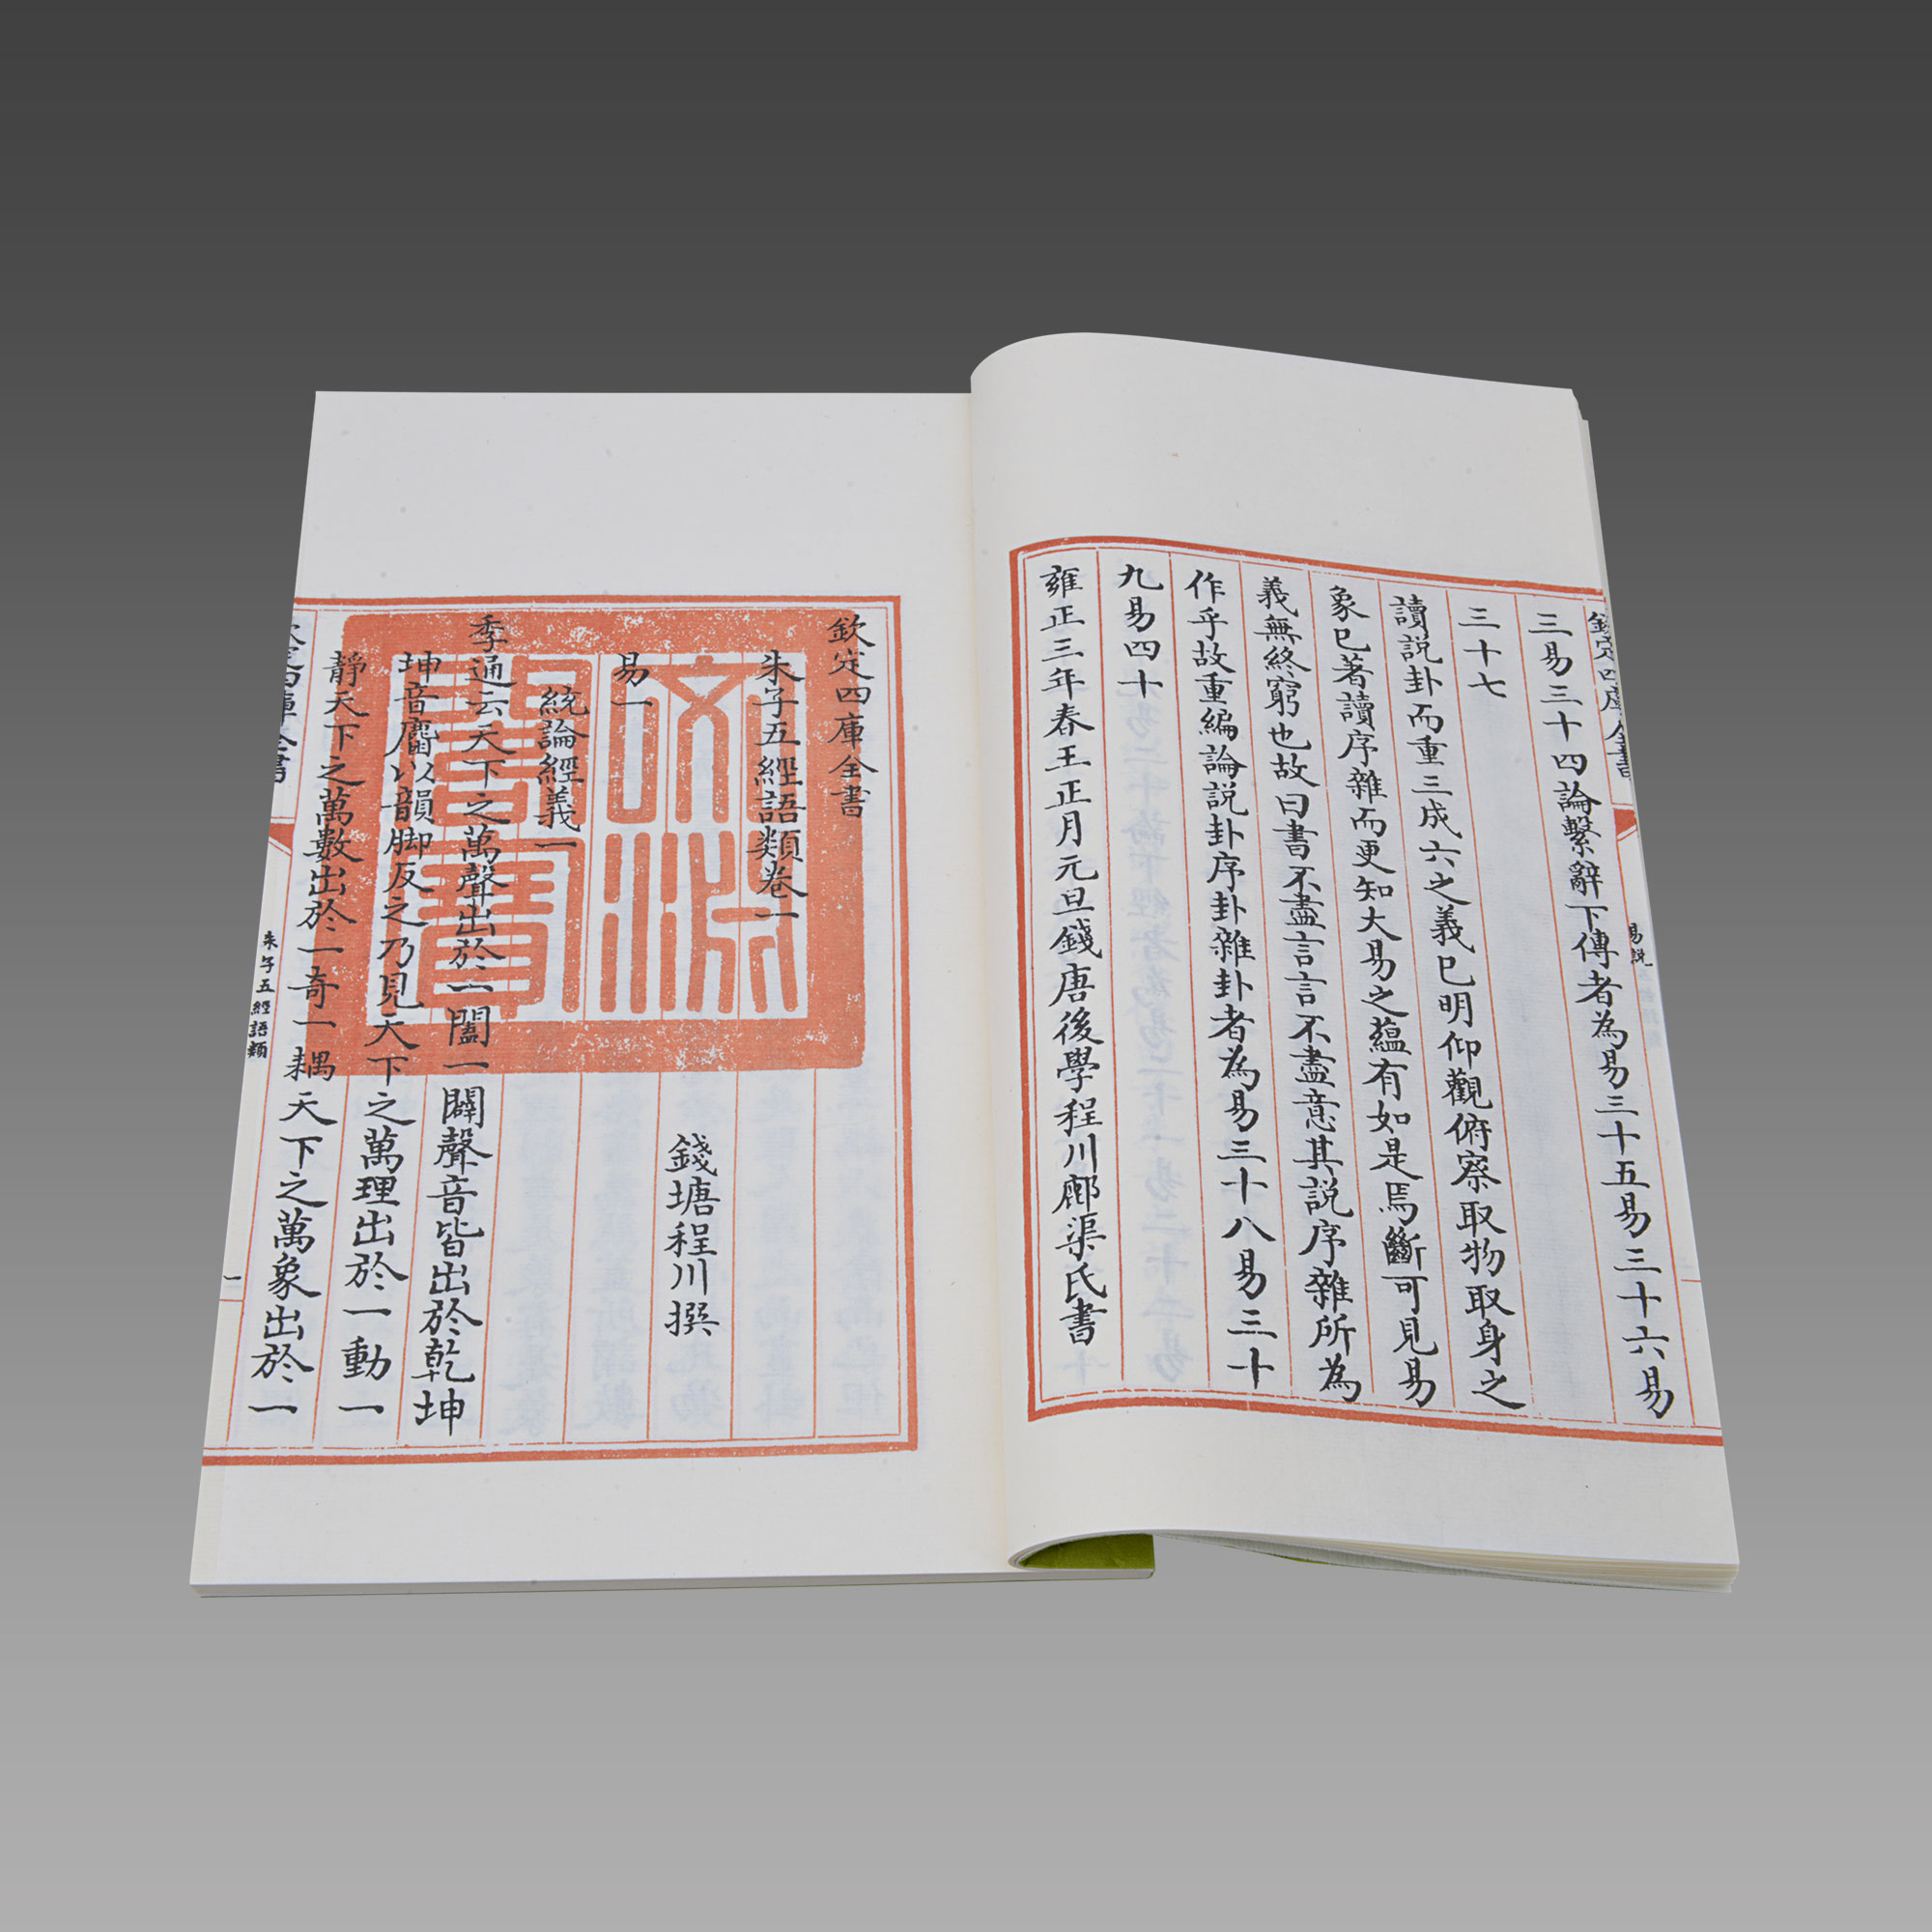 欽定四庫全書
易説
三易三十四論繫辭下傳者為易三十五易三十六易
三十七
讀説卦而重三成六之義已明仰觀俯察取物取身之
象已著讀序雜而更知大易之蘊有如是焉斷可見易
義無終窮也故曰書不盡言言不盡意其説序雜所為
作乎故重編論説卦序卦雜卦者為易三十八易三十
九易四十
雍正三年春王正月元旦錢唐後學程川郮渠氏書
欽定四庫全書
朱子五經語類卷一
錢塘程川撰
易一
統論經義一
季通云天下之萬聲出於一闔一闢聲音皆出於乾坤
坤音麕以韻脚反之乃見天下之萬理出於一動一
靜天下之萬數出於一奇一耦天下之萬象出於一
朱子五經語類
一
文源閣寶